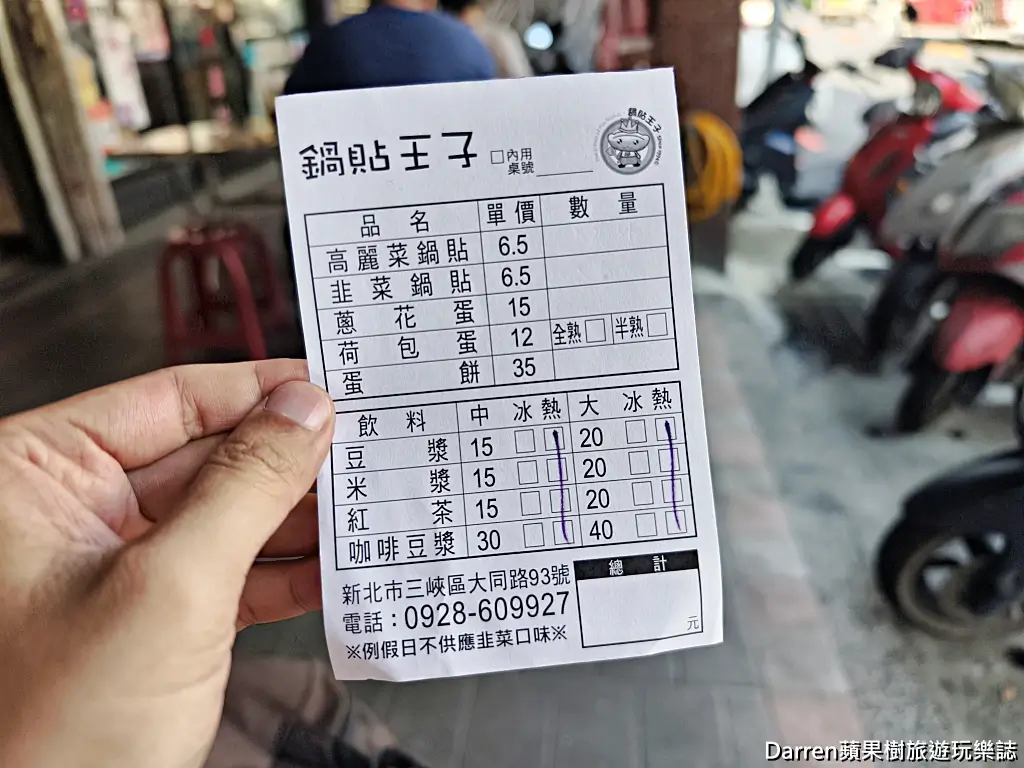 鍋貼王子 □內用 桌號______ 鍋貼王子
品名 單價 數量
高麗菜鍋貼 6.5
韭菜鍋貼 6.5
蔥花蛋 15
荷包蛋 12 全熟□ 半熟□
蛋餅 35
飲料 中 冰 熱 大 冰 熱
豆漿 15 □ □ 20 □ □
米漿 15 □ □ 20 □ □
紅茶 15 □ □ 20 □ □
咖啡豆漿 30 □ □ 40 □ □
新北市三峽區大同路93號
電話：0928-609927
※例假日不供應韭菜口味※
總計
元
Darren蘋果樹旅遊玩樂誌